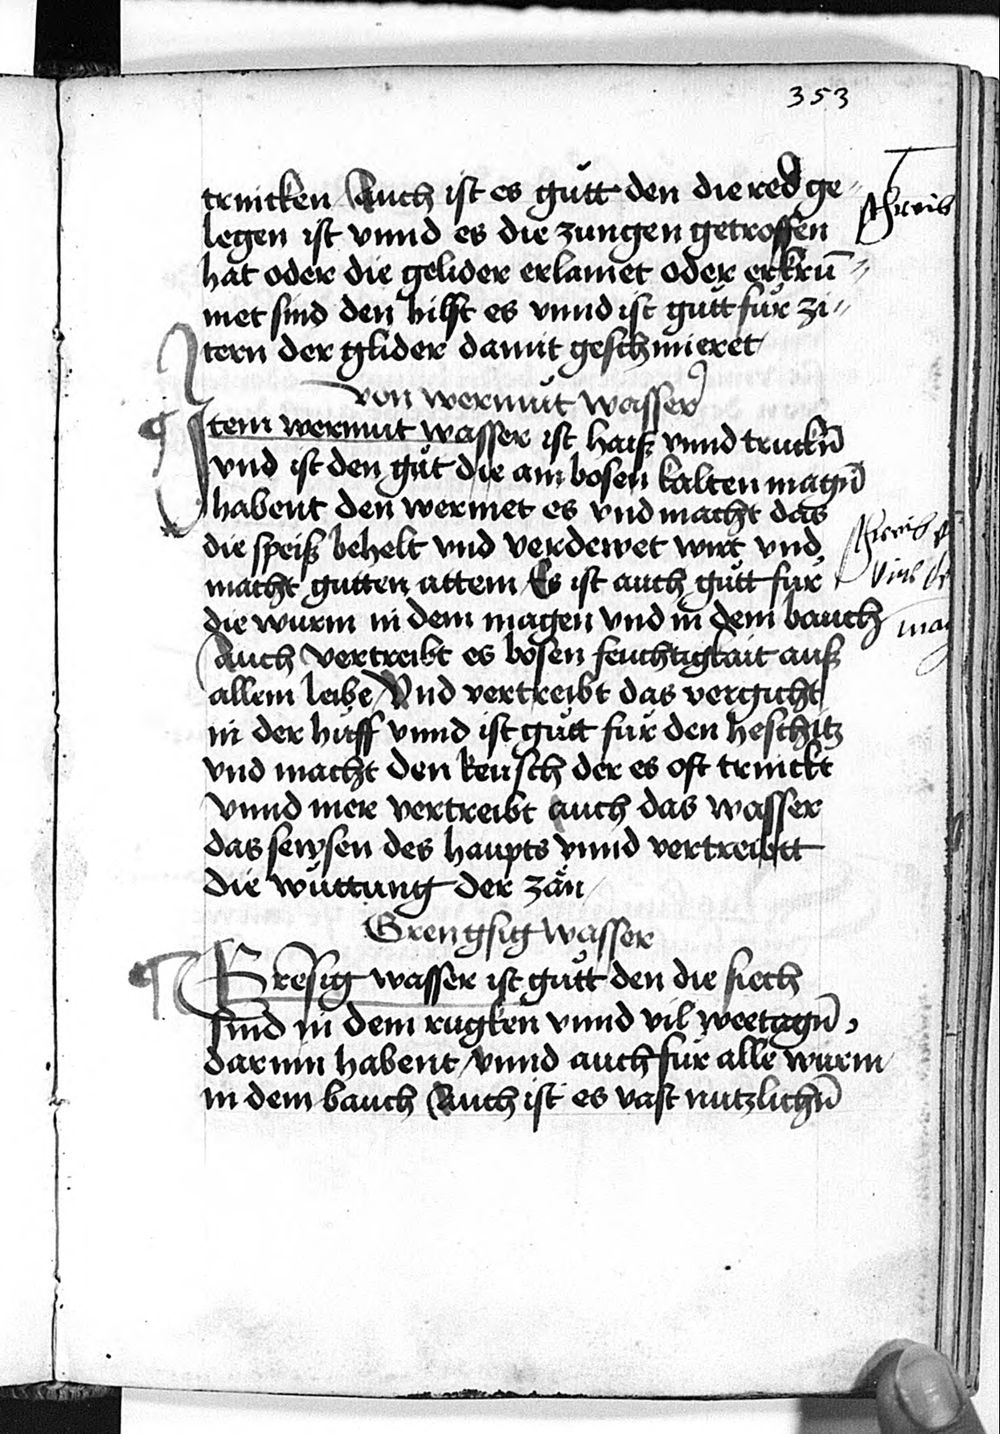 353
trincken Auch ist es gůtt den die red ge-
legen ist vnnd es die zungen getroffen
hat oder die gelider erlamet oder erkrū-
met sind den hilfft es vnnd ist gůtt für zi-
tern der glider damit geschmieret
von wermůt wasser
Item wermut wasser ist haiß vnnd truckn̄
vnd ist den gůt die ain bosen kalten magn̄
habent den wermet es vnd macht das
die speiß behelt vnd verdewet wirt vnd
macht gutten attem Es ist auch gůtt für
die wurm in dem magen vnd in dem bauch
Auch vertreibt es bösen feuchtigkait auß
allem leibe Vnd vertreibt das vergicht
in der hüff vnnd ist gůtt für den heschitz
vnd macht den keusch der es oft trinckt
vnnd mer vertreibt auch das wasser
das seẅsen des haupts vnnd vertreibtt
die wüttung der zän
Grengsig wasser
Gresig wasser ist gůtt den die siech
sind in dem rugken vnnd vil weetagn̄
darinn habent vnnd auch für alle würm
in dem bauch Auch ist es vast nutzlichn̄
schreib